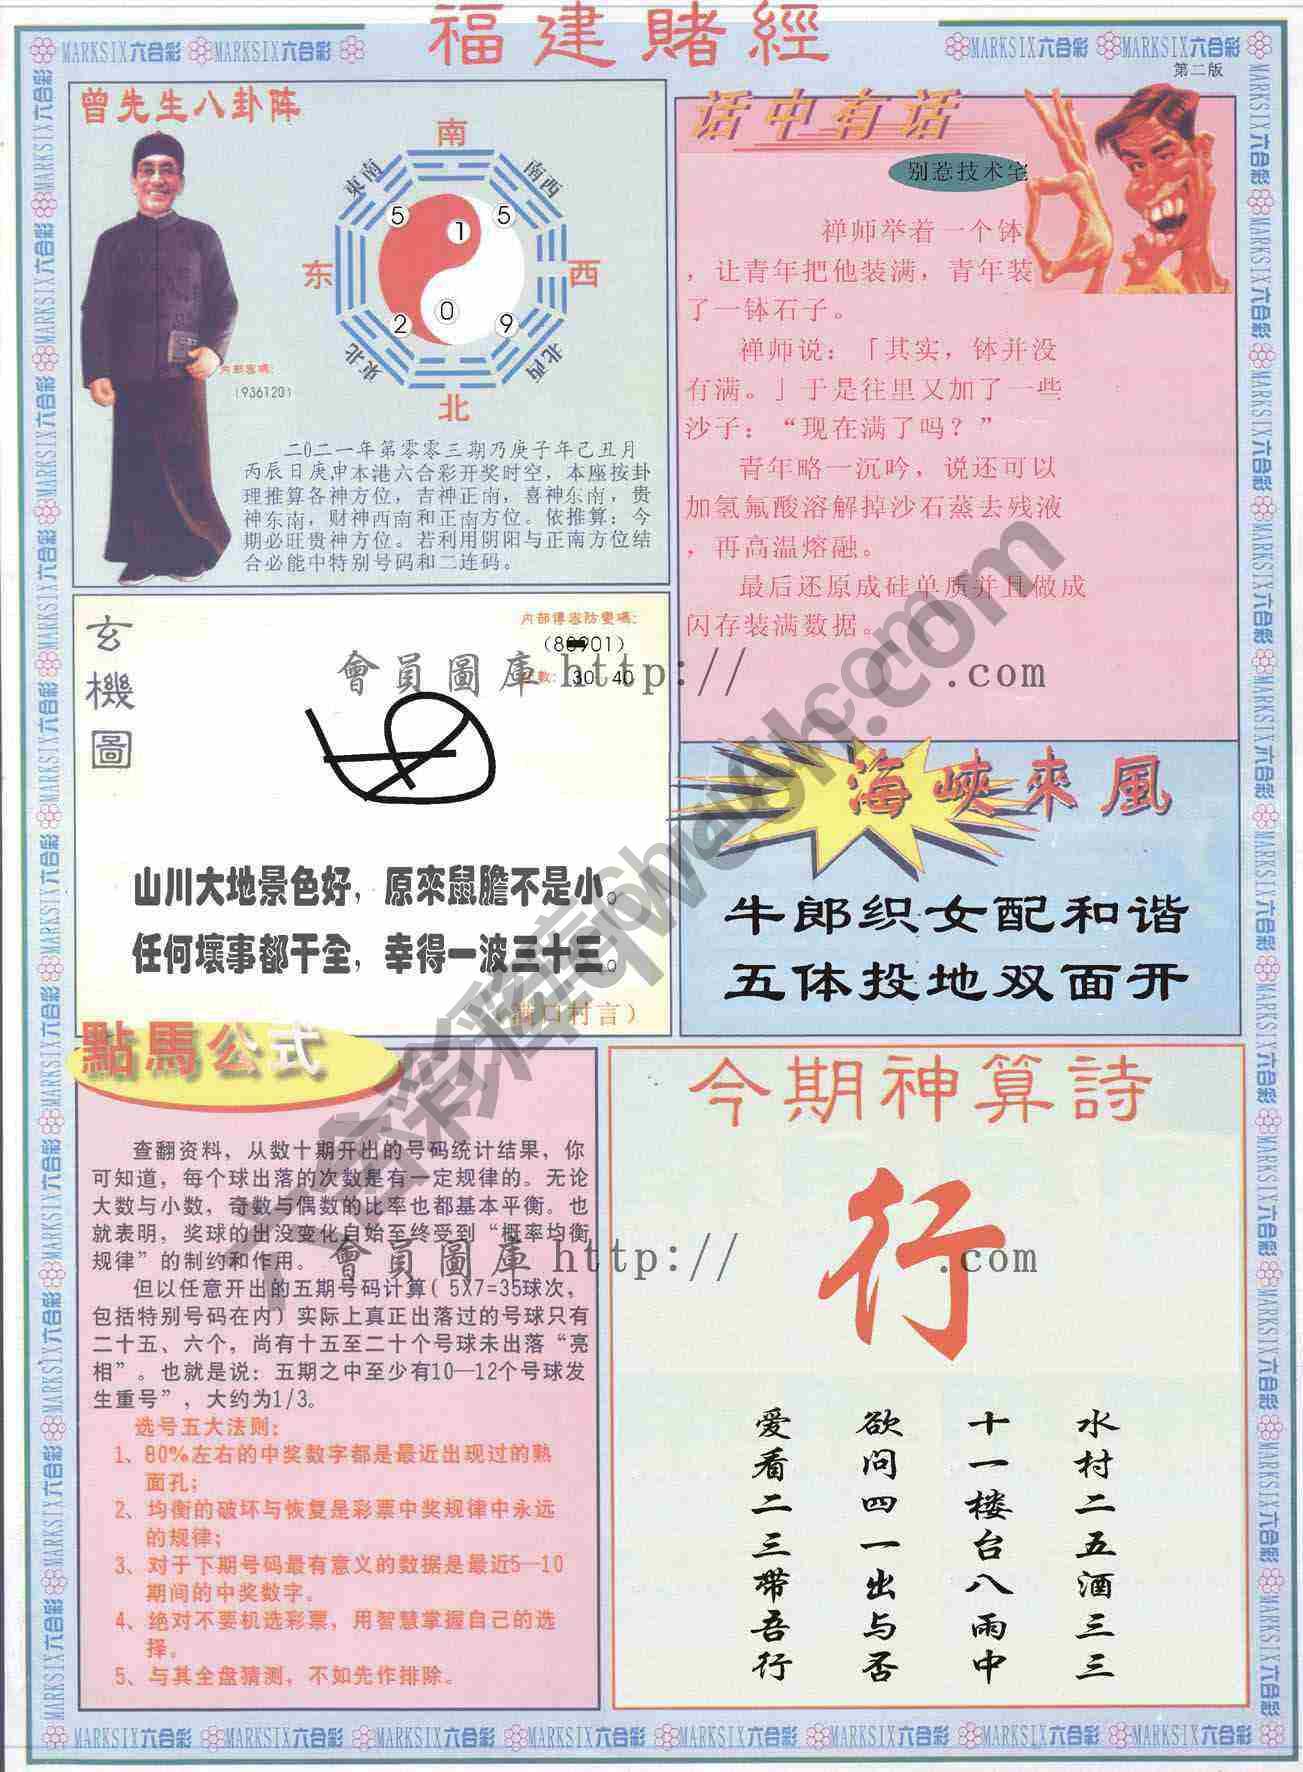 福建賭經
MARKSIX六合彩 MARKSIX六合彩
MARKSIX六合彩 MARKSIX六合彩
第二版
曾先生八卦阵
南
東南
南西
5
1
5
东
西
2
0
9
東北
北西
北
内部密碼:
(936120)
二〇二一年第零零三期乃庚子年己丑月
丙辰日庚申本港六合彩开奖时空，本座按卦
理推算各神方位，吉神正南，喜神东南，贵
神东南，财神西南和正南方位。依推算：今
期必旺贵神方位。若利用阴阳与正南方位结
合必能中特别号码和二连码。
话中有话
别惹技术宅
禅师举着一个钵
，让青年把他装满，青年装
了一钵石子。
禅师说：「其实，钵并没
有满。」于是往里又加了一些
沙子：“现在满了吗？”
青年略一沉吟，说还可以
加氢氟酸溶解掉沙石蒸去残液
，再高温熔融。
最后还原成硅单质并且做成
闪存装满数据。
玄機圖
内部傳密防變碼:
數: 30 40
會員圖庫 http:// .com
山川大地景色好，原來鼠膽不是小。
任何壞事都干全，幸得一波三十三。
（满口村言）
海峽來風
牛郎织女配和谐
五体投地双面开
點馬公式
查翻资料，从数十期开出的号码统计结果，你
可知道，每个球出落的次数是有一定规律的。无论
大数与小数，奇数与偶数的比率也都基本平衡。也
就表明，奖球的出没变化自始至终受到“概率均衡
规律”的制约和作用。
會員圖庫 http:// .com
但以任意开出的五期号码计算( 5X7=35球次，
包括特别号码在内）实际上真正出落过的号球只有
二十五、六个，尚有十五至二十个号球未出落“亮
相”。也就是说：五期之中至少有10—12个号球发
生重号”，大约为1/3。
选号五大法则：
1、80%左右的中奖数字都是最近出现过的熟
面孔；
2、均衡的破坏与恢复是彩票中奖规律中永远
的规律；
3、对于下期号码最有意义的数据是最近5—10
期间的中奖数字。
4、绝对不要机选彩票，用智慧掌握自己的选
择。
5、与其全盘猜测，不如先作排除。
今期神算詩
行
水村二五酒三三
十一楼台八雨中
欲问四一出与否
爱看二三带吾行
MARKSIX六合彩 MARKSIX六合彩 MARKSIX六合彩 MARKSIX六合彩 MARKSIX六合彩 MARKSIX六合彩 MARKSIX六合彩 MARKSIX六合彩